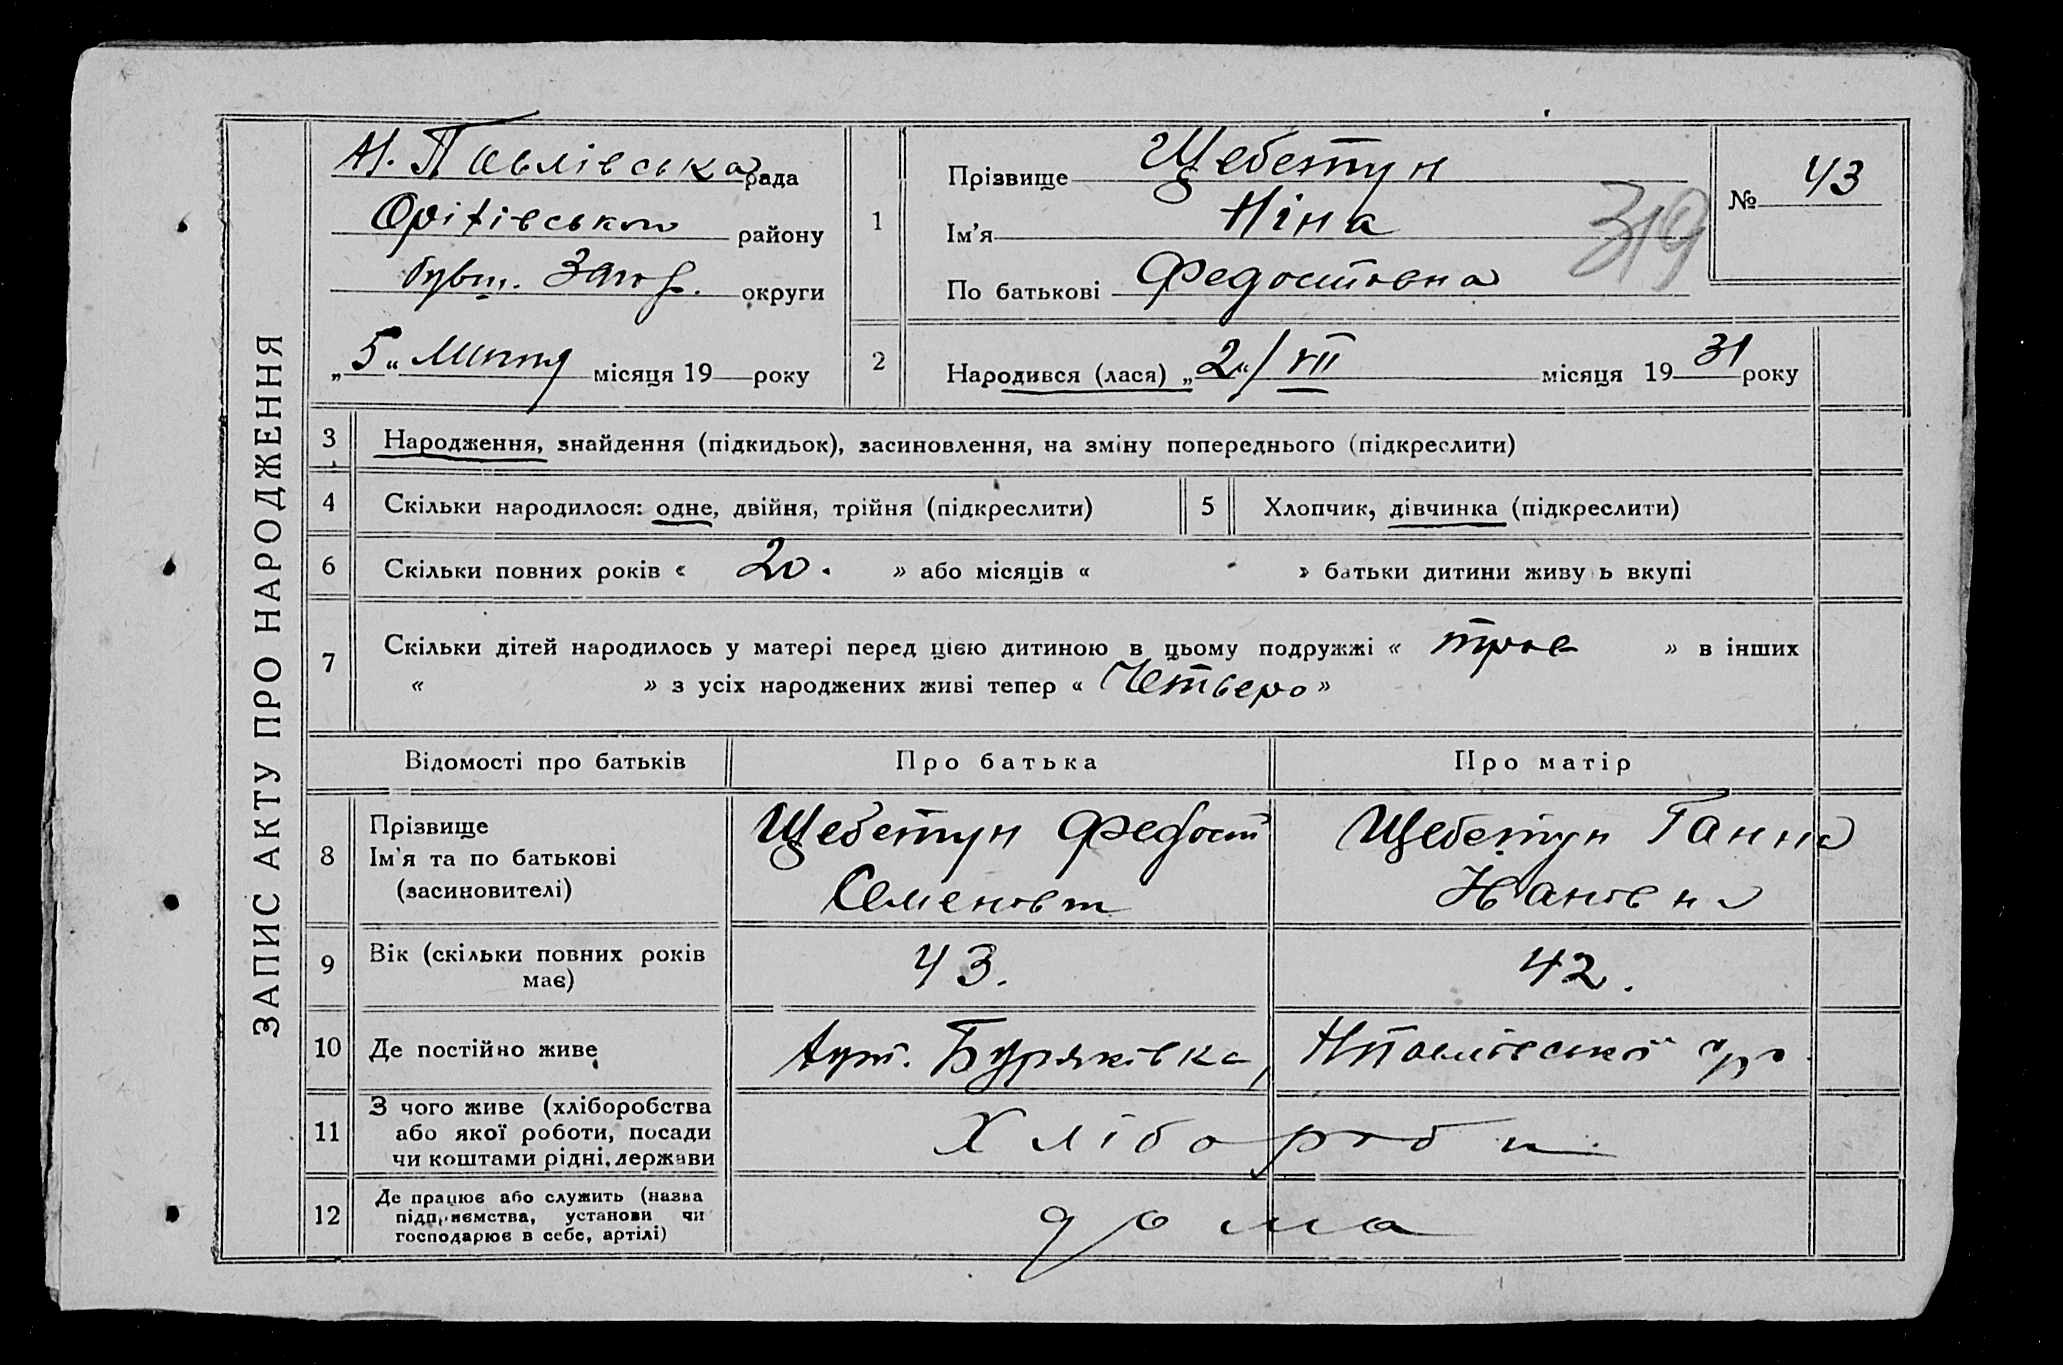 ЗАПИС АКТУ ПРО НАРОДЖЕННЯ
Н. Павлівська рада
Оріхівськом району
бувш. Запор. округи
„5“ Липня місяця 19 року
1
Прізвище Щебетун
Ім'я Ніна
По батькові Федостовна
№ 43
319
2
Народився (лася) „2“/VII місяця 1931 року
3 Народження, знайдення (підкидьок), засиновлення, на зміну попереднього (підкреслити)
4 Скільки народилося: одне, двійня, трійня (підкреслити)
5 Хлопчик, дівчинка (підкреслити)
6 Скільки повних років « 20. » або місяців « » батьки дитини живу ь вкупі
7 Скільки дітей народилось у матері перед цією дитиною в цьому подружжі « троє » в інших
« » з усіх народжених живі тепер « Четверо »
Відомості про батьків Про батька Про матір
8 Прізвище
Ім'я та по батькові
(засиновителі)
Щебетун Федост
Семенович
Щебетун Ганна
Івановна
9 Вік (скільки повних років
має)
43. 42.
10 Де постійно живе
хут. Буряківка, Нпавлівської с/р
11 З чого живе (хліборобства
або якої роботи, посади
чи коштами рідні, держави
Хлібороби
12 Де працює або служить (назва
підприємства, установи чи
господарює в себе, артілі)
дома